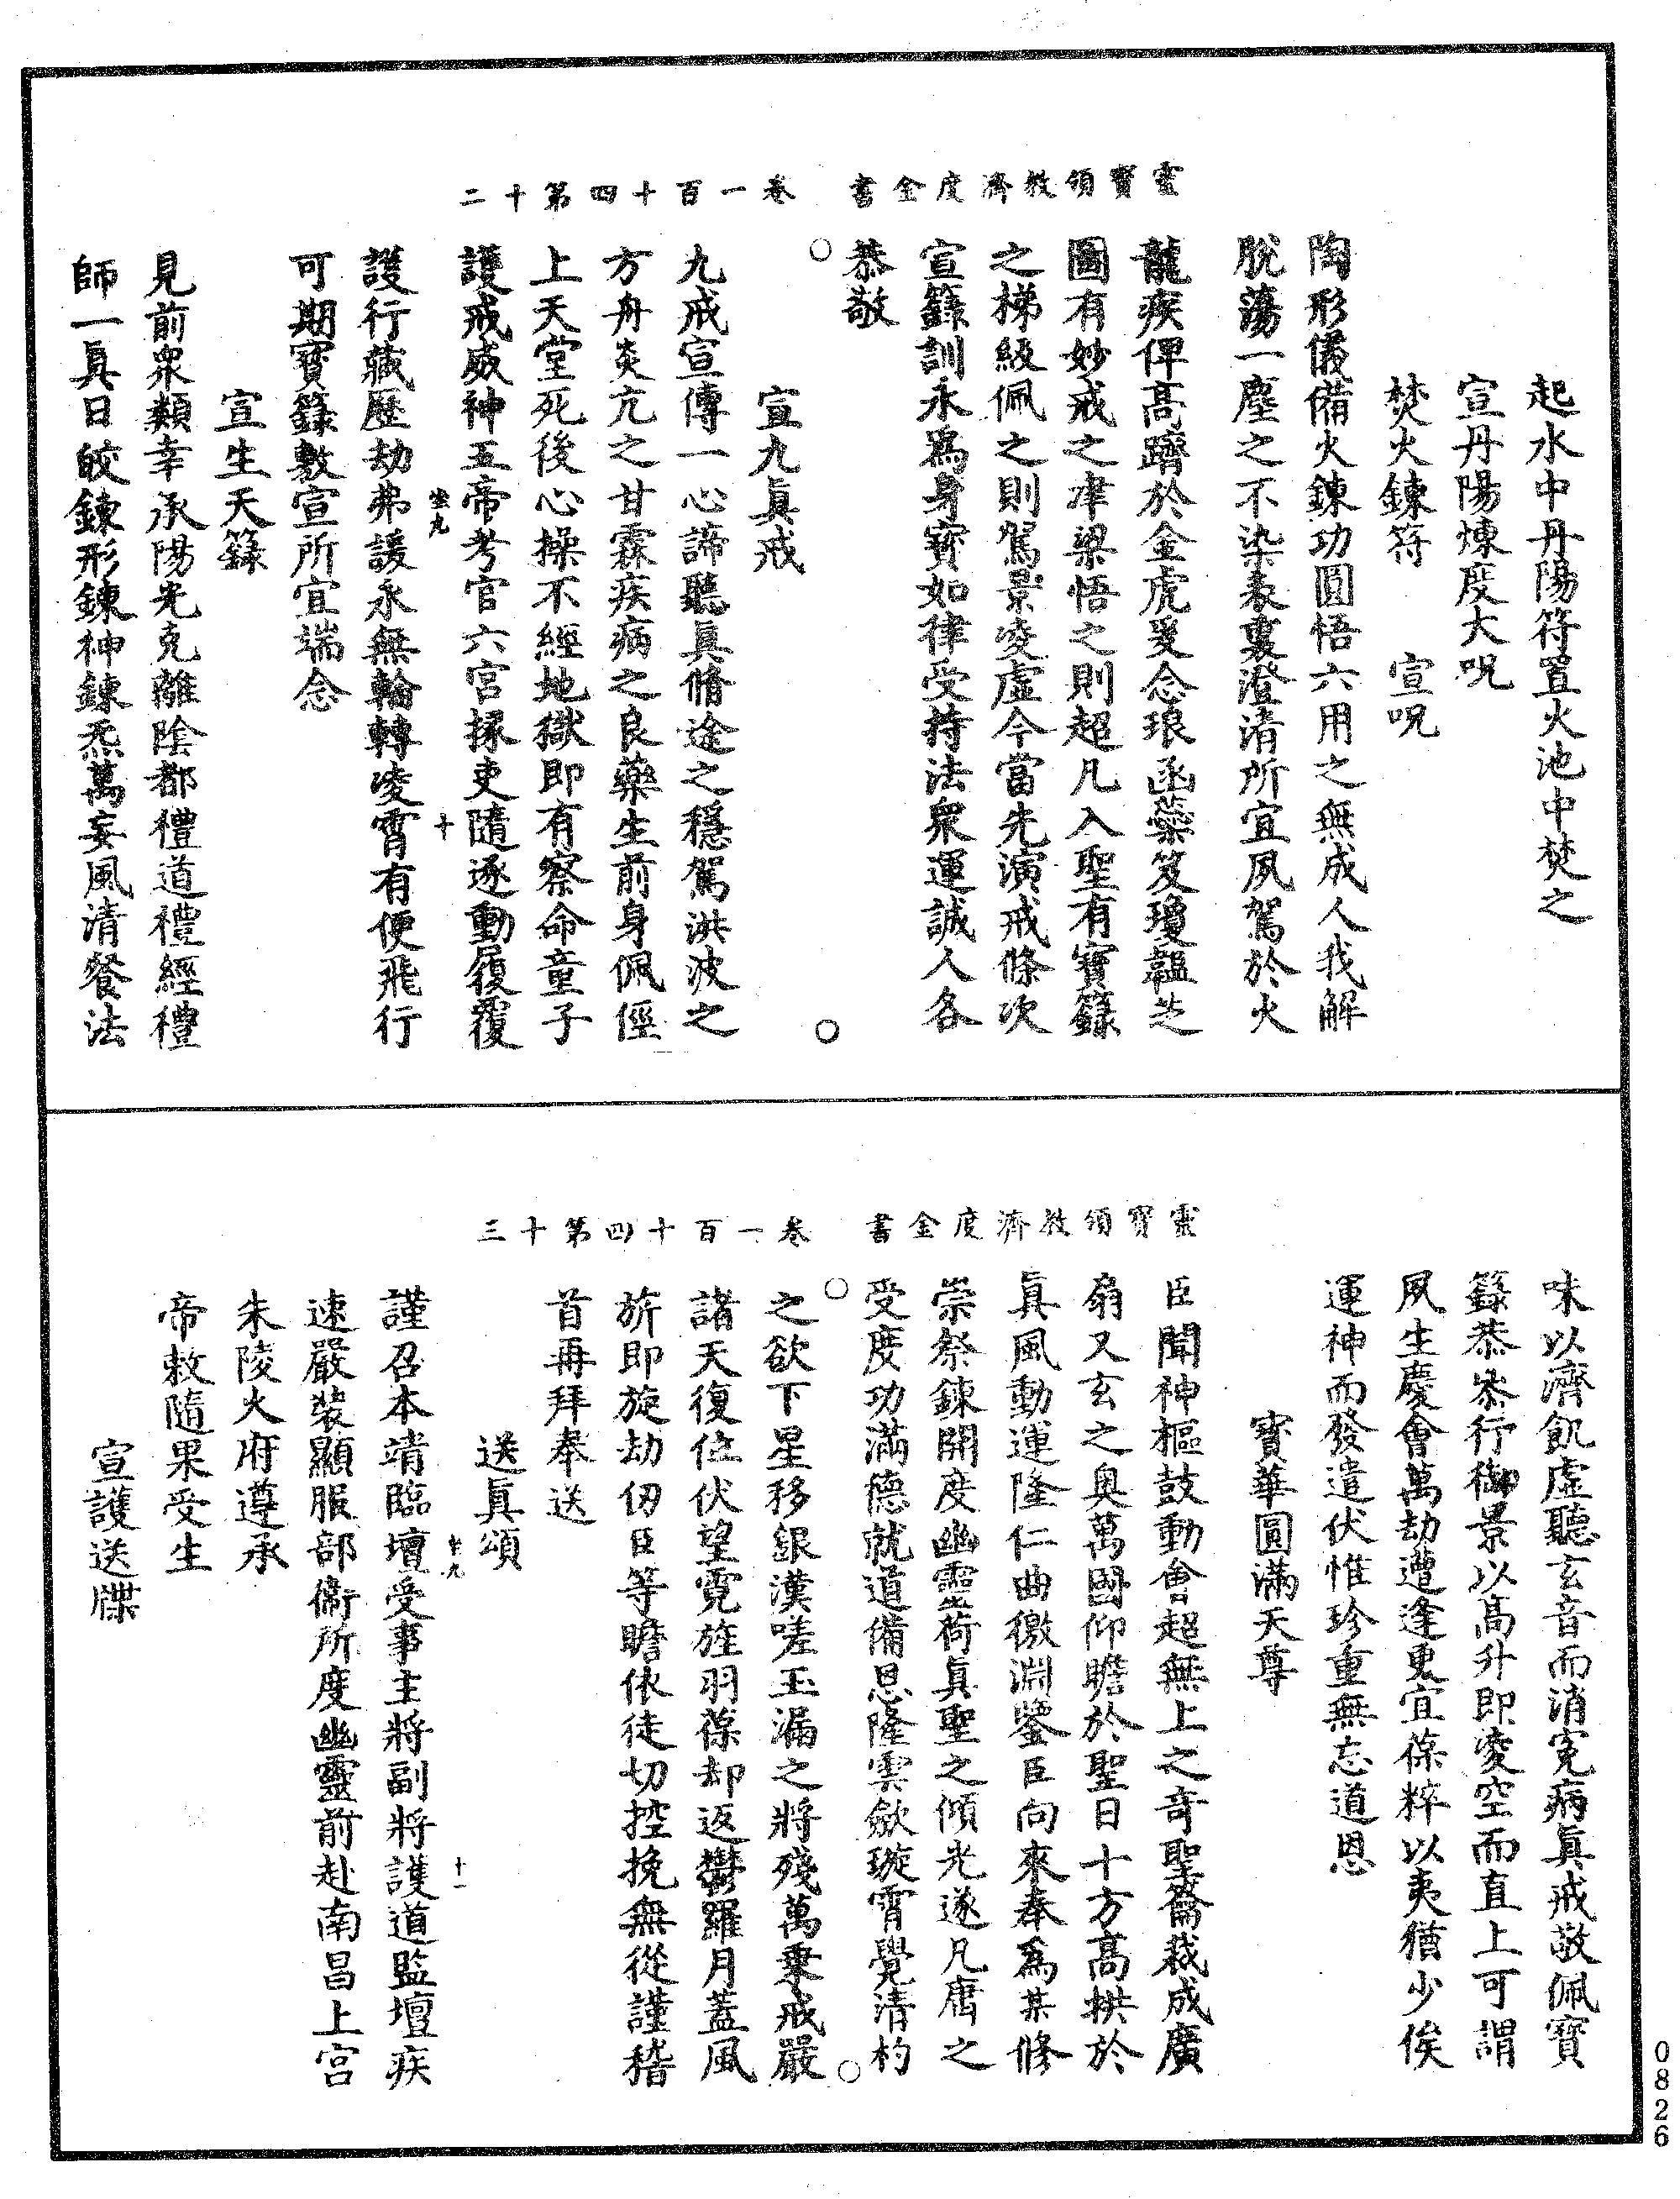 靈寶領教濟度金書 卷一百十四第十二
起水中丹陽符置火池中焚之
宣丹陽煉度大呪
焚火鍊符 宣呪
陶形儀備火鍊功圓悟六用之無成人我解
脫蕩一塵之不染表裏澄清所宜夙駕於火
龍疾俾高躋於金虎爰念琅函蘂笈瓊韞芝
圖有妙戒之津梁悟之則超凡入聖有寶籙
之梯級佩之則駕景凌虛今當先演戒條次
宣籙訓永為身寶如律受持法衆運誠人各
恭敬
宣九眞戒
九戒宣傳一心諦聽眞脩途之穩駕洪波之
方舟炎亢之甘霖疾病之良藥生前身佩徑
上天堂死後心操不經地獄即有察命童子
護戒威神五帝考官六宮掾吏隨逐動履覆
坐九 十
護行藏歷劫弗諼永無輪轉凌霄有便飛行
可期寶籙敷宣所宜端念
宣生天籙
見前衆類幸承陽光克離陰都禮道禮經禮
師一眞日皎鍊形鍊神鍊炁萬妄風清餐法
靈寶領教濟度金書 卷一百十四第十三
味以濟飢虛聽玄音而消冤病眞戒敬佩寶
籙恭參行御景以高升即凌空而直上可謂
夙生慶會萬劫遭逢更宜葆粹以夷猶少俟
運神而發遣伏惟珍重無忘道恩
寶華圓滿天尊
臣聞神樞鼓動會超無上之奇聖籥裁成廣
扇又玄之奥萬國仰瞻於聖日十方高拱於
眞風動運隆仁曲徼淵鑒臣向來奉為某修
崇祭鍊開度幽靈荷眞聖之傾光遂凡庸之
受度功滿德就道備恩隆雲斂璇霄覺清杓
之欲下星移銀漢嗟玉漏之將殘萬乗戒嚴
諸天復位伏望霓旌羽葆却返鬱羅月蓋風
旂即旋劫仞臣等瞻依徒切控挽無從謹稽
首再拜奉送
送眞頌
坐九 十一
謹召本靖臨壇受事主將副將護道監壇疾
速嚴裝顯服部衛所度幽靈前赴南昌上宮
朱陵火府遵承
帝敕隨果受生
宣護送牒
0826